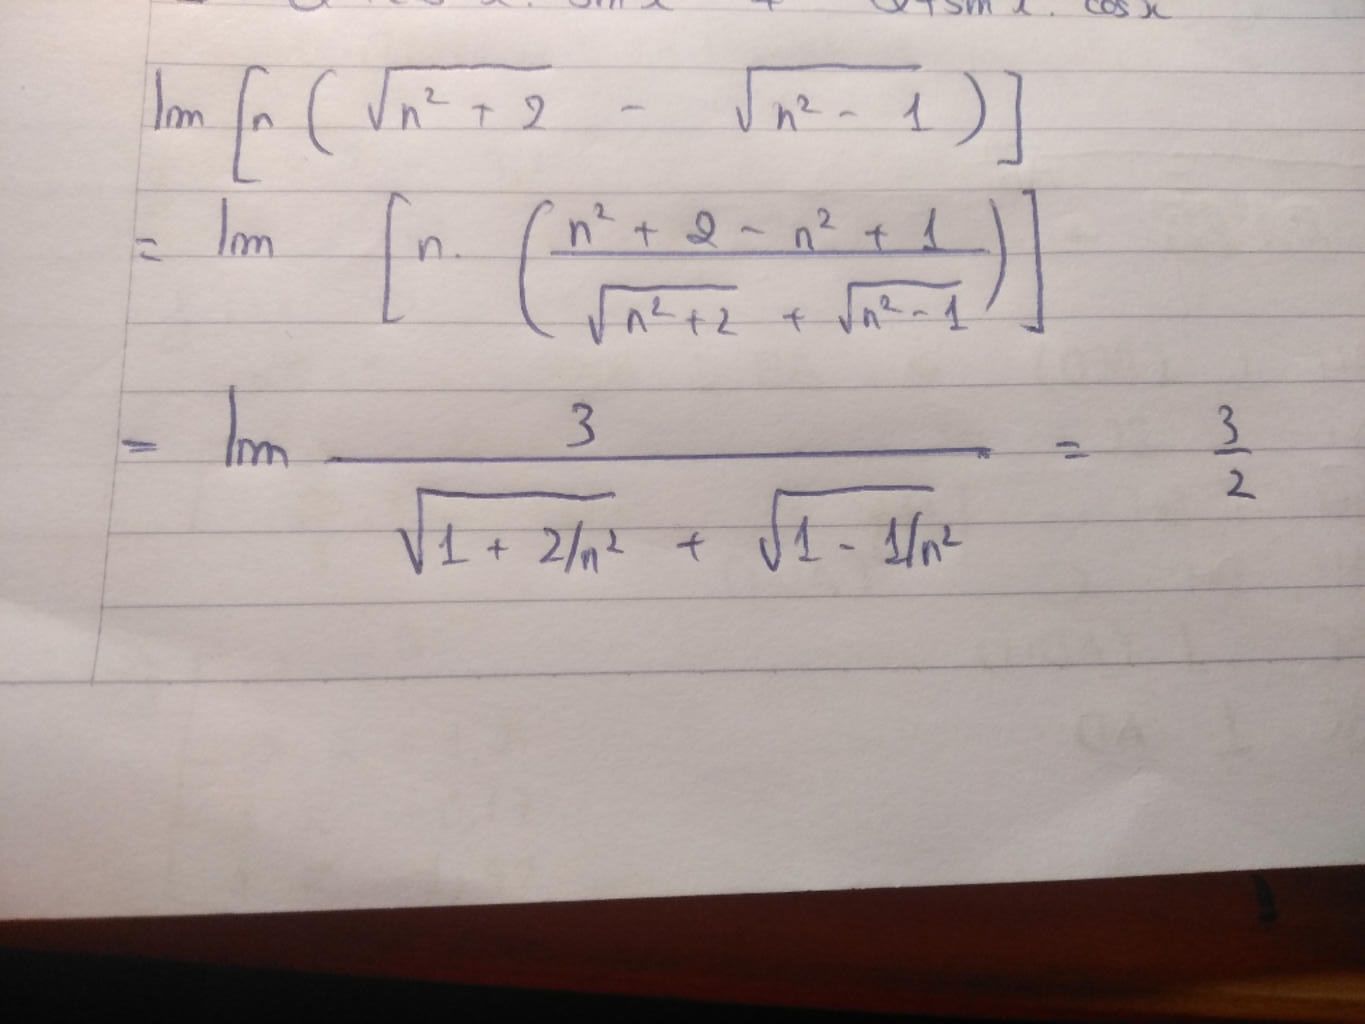 sin x . cos x
lim [n ( √(n² + 2) - √(n² - 1) )]
= lim [n. ( (n² + 2 - n² + 1) / (√(n²+2) + √(n²-1)) )]
= lim 3 / (√(1 + 2/n²) + √(1 - 1/n²)) = 3/2